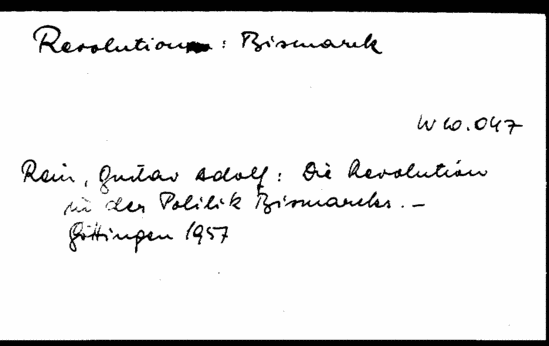 Revolution : Bismarck
W 60.047
Rein, Gustav Adolf : Die Revolution
in der Politik Bismarcks. –
Göttingen 1957